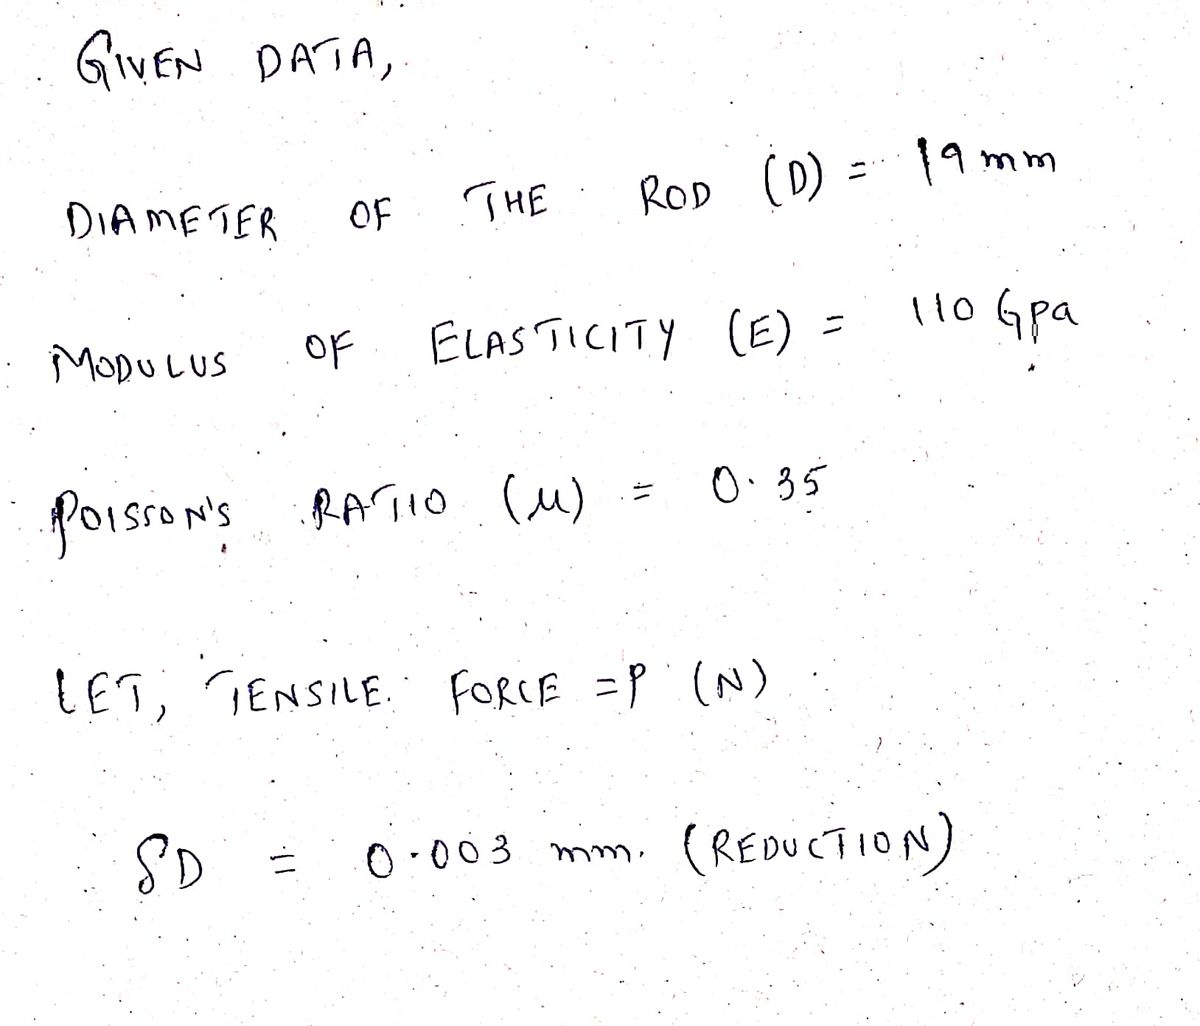 GIVEN DATA,
DIAMETER OF THE ROD (D) = 19 mm
MODULUS OF ELASTICITY (E) = 110 Gpa
POISSON'S RATIO (μ) = 0.35
LET, TENSILE FORCE = P (N)
δD = 0.003 mm. (REDUCTION)